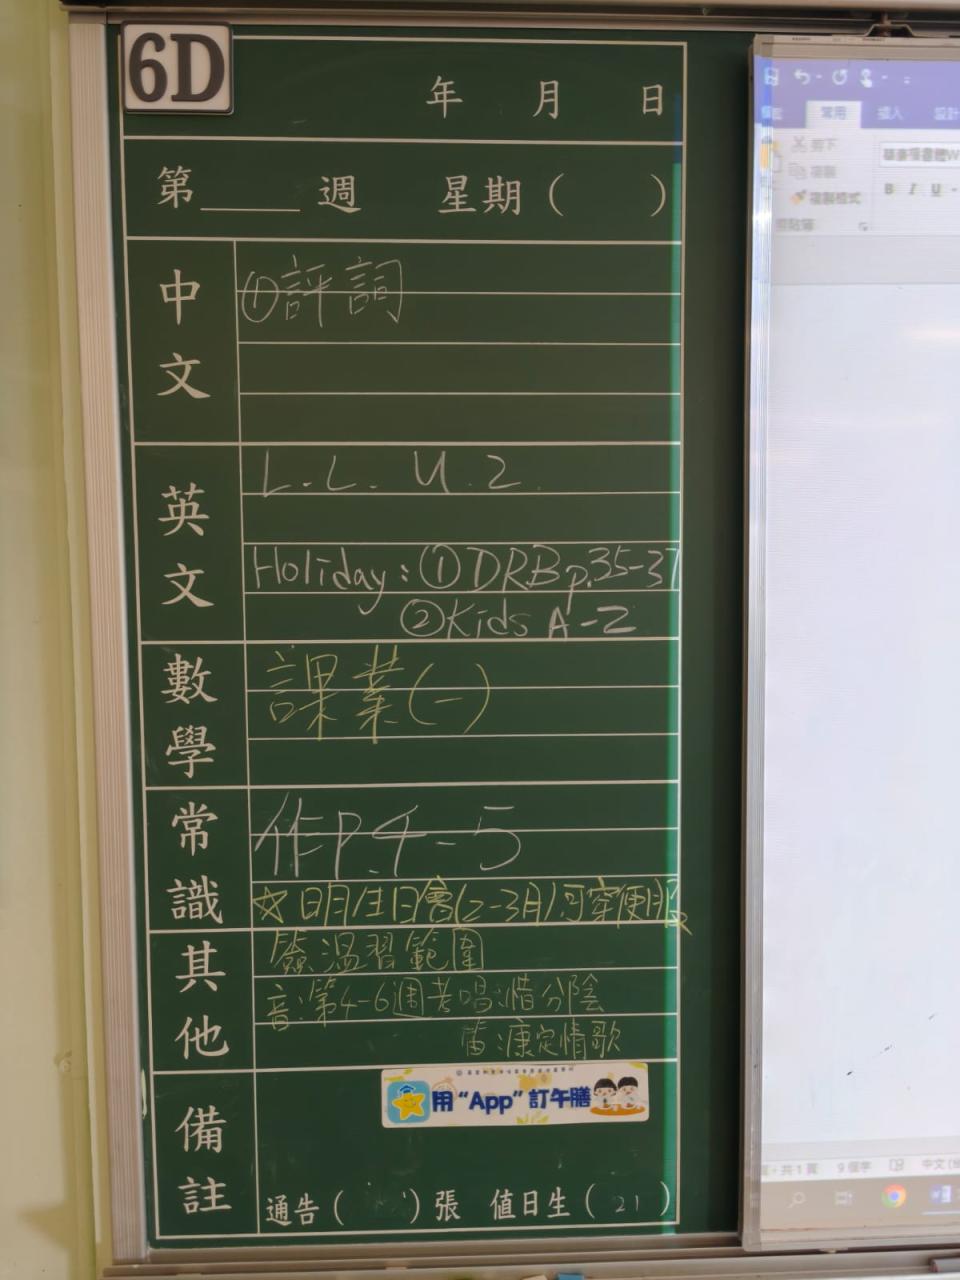 6D
年 月 日
第____週 星期( )
中文
①評詞
英文
L.L. U.2
Holiday: ①DRB p.35-37
②Kids A-Z
數學
課業(一)
常識
作P.4-5
☆ 明日生日會(2-3月)可穿便服
其他
簽溫習範圍
音:第4-6週考唱:惜分陰
笛:康定情歌
備註
用“App”訂午膳
通告( )張 值日生( 21 )
常用 插入 設計
剪下
複製
複製格式
剪貼簿
B I U
共1頁 9個字 中文